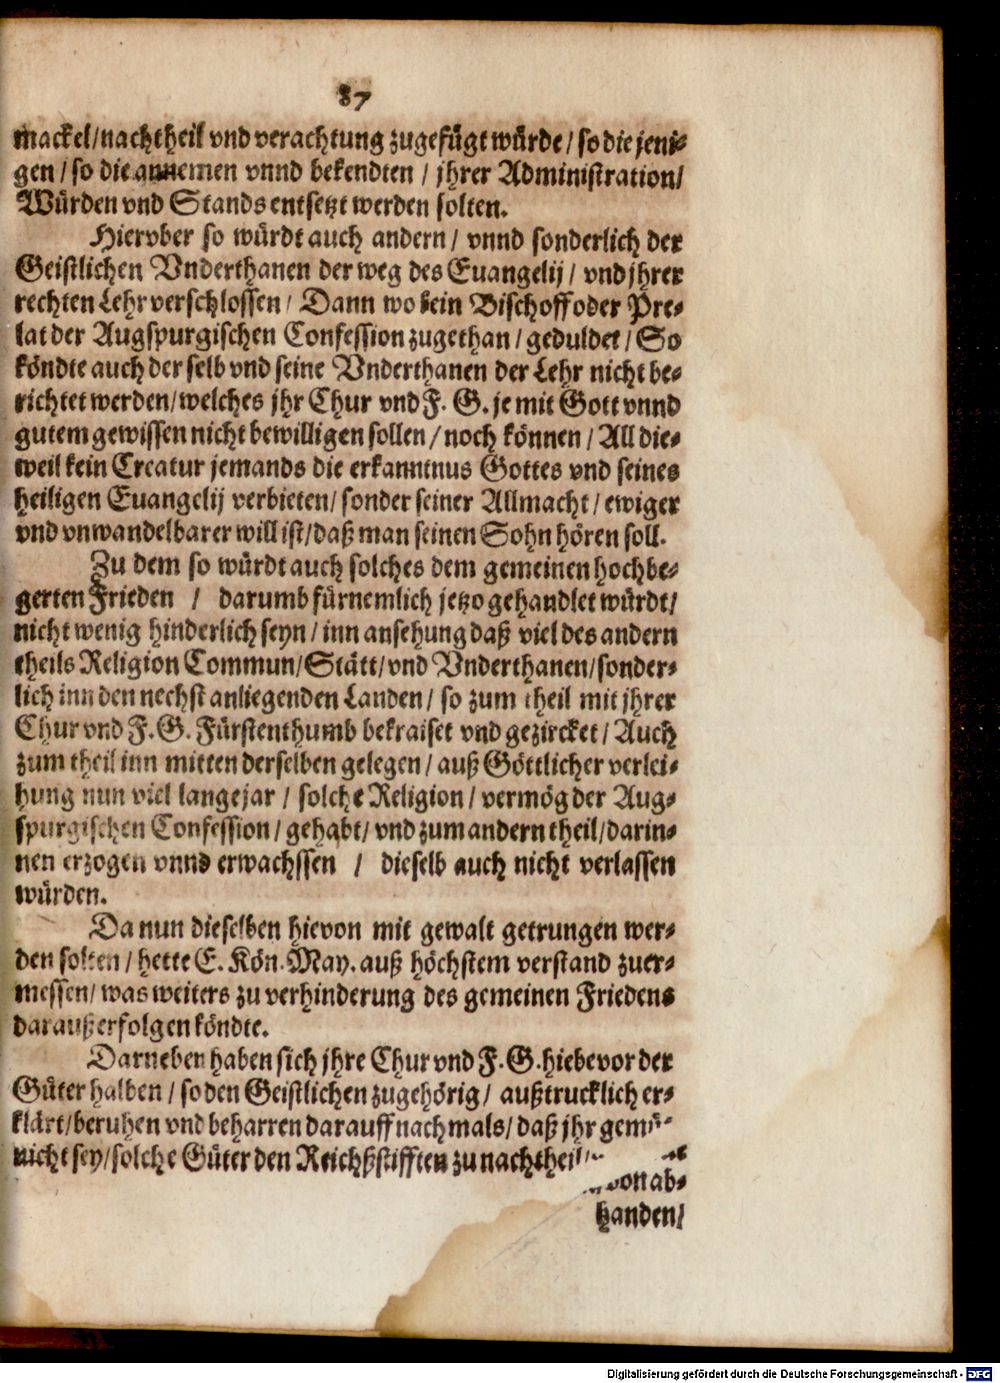 87
mackel/nachtheil vnd verachtung zugefügt würde/ so die jeni-
gen/ so die annemen vnnd bekendten/ jhrer Administration/
Würden vnd Stands entsetzt werden solten.
Hierober so würdt auch andern/ vnnd sonderlich der
Geistlichen Vnderthanen der weg des Euangelij/ vnd jhrer
rechten Lehr verschlossen/ Dann wo kein Bischoff oder Pre-
lat der Augspurgischen Confession zugethan/ geduldet/ So
köndte auch der selb vnd seine Vnderthanen der Lehr nicht be-
richtet werden/ welches jhr Chur vnd F. G. je mit Gott vnnd
gutem gewissen nicht bewilligen sollen/ noch können/ All die-
weil kein Creatur jemands die erkanntnus Gottes vnd seines
heiligen Euangelij verbieten/ sonder seiner Allmacht/ ewiger
vnd vnwandelbarer will ist/ daß man seinen Sohn hören soll.
Zu dem so würdt auch solches dem gemeinen hochbe-
gerten Frieden / darumb fürnemlich jetzo gehandlet würdt/
nicht wenig hinderlich seyn/ inn ansehung daß viel des andern
theils Religion Commun/ Stätt/ vnd Vnderthanen/ sonder-
lich inn den nechst anliegenden Landen/ so zum theil mit jhrer
Chur vnd F. G. Fürstenthumb bekraiset vnd gezircket/ Auch
zum theil inn mitten derselben gelegen/ auß Göttlicher verlei-
hung nun viel lange jar/ solche Religion/ vermög der Aug-
spurgischen Confession/ gehabt/ vnd zum andern theil/ darin-
nen erzogen vnnd erwachssen / dieselb auch nicht verlassen
würden.
Da nun dieselben hievon mit gewalt getrungen wer-
den solten/ hette E. Kön. May. auß höchstem verstand zuer-
messen/ was weiters zu verhinderung des gemeinen Friedens
darauß erfolgen köndte.
Darneben haben sich jhre Chur vnd F. G. hiebevor der
Güter halben/ so den Geistlichen zugehörig/ außtrucklich er-
klärt/ beruhen vnd beharren darauff nachmals/ daß jhr gemü-
nicht sey/ solche Güter den Reichßstifften zu nachtheil/
von ab-
handen/
Digitalisierung gefördert durch die Deutsche Forschungsgemeinschaft - DFG